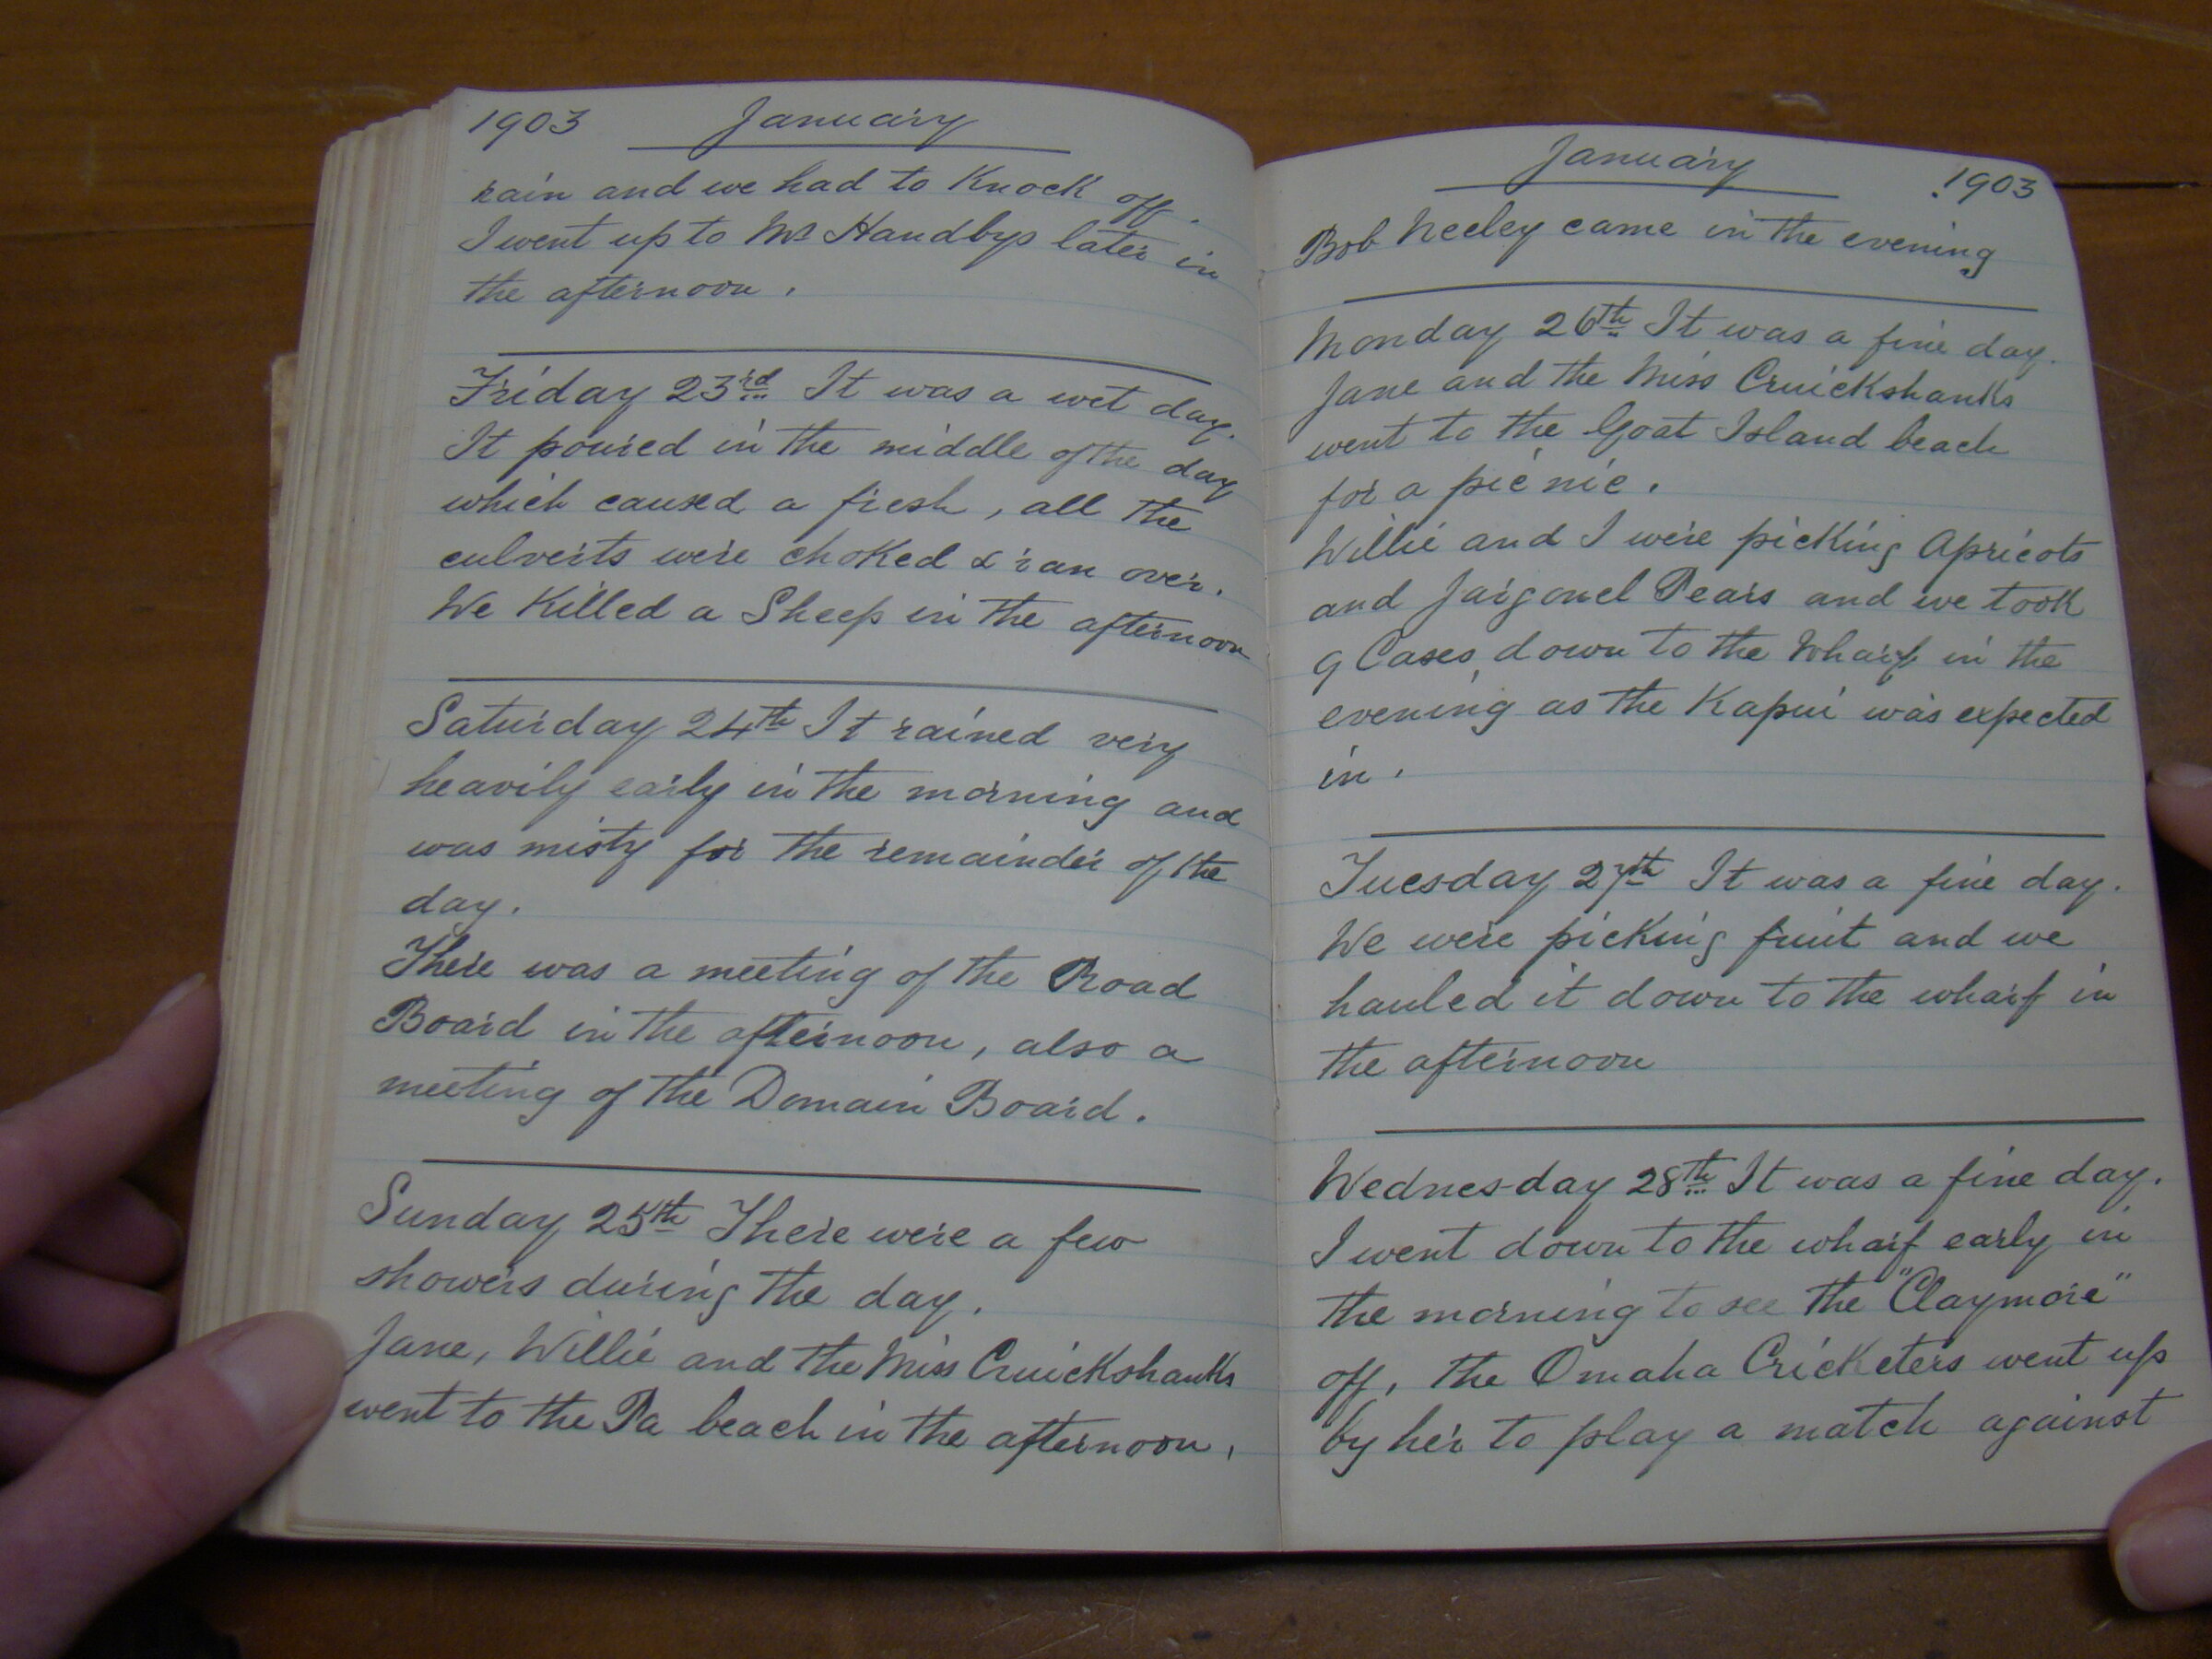 1903 January
rain and we had to Knock off.
I went up to Mr Handbys later in
the afternoon.
Friday 23rd It was a wet day.
It poured in the middle of the day
which caused a fresh, all the
culverts were choked & ran over.
We Killed a Sheep in the afternoon
Saturday 24th It rained very
heavily early in the morning and
was misty for the remainder of the
day.
There was a meeting of the Road
Board in the afternoon, also a
meeting of the Domain Board.
Sunday 25th There were a few
showers during the day.
Jane, Willie and the Miss Cruickshanks
went to the Pa beach in the afternoon.
January 1903
Bob Neeley came in the evening
Monday 26th It was a fine day.
Jane and the Miss Cruickshanks
went to the Goat Island beach
for a pic nic.
Willie and I were picking Apricots
and Jargonel Pears and we took
9 Cases down to the Wharf in the
evening as the Kapui was expected
in.
Tuesday 27th It was a fine day.
We were picking fruit and we
hauled it down to the wharf in
the afternoon
Wednesday 28th It was a fine day.
I went down to the wharf early in
the morning to see the "Claymore"
off, the Omaha Cricketers went up
by her to play a match against